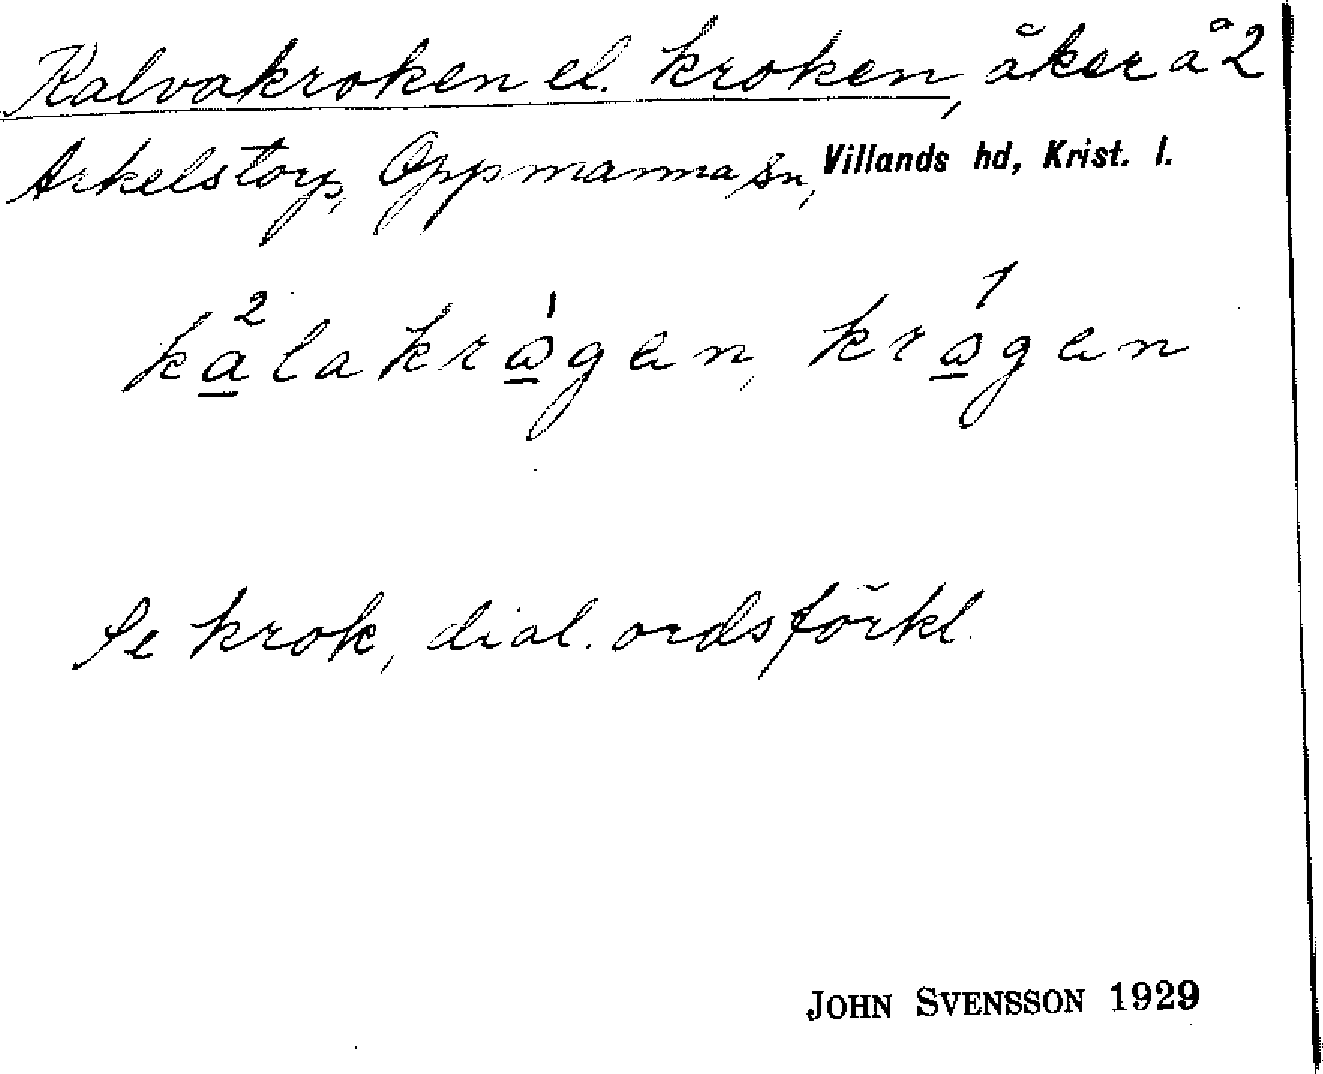 Kalvakroken el. kroken, åker å 2
Arkelstorp, Oppmanna sn, Villands hd, Krist. l.
ka̲²lakrå̲¹gen, krå̲¹gen
Se krok, dial. ordsförkl.
JOHN SVENSSON 1929